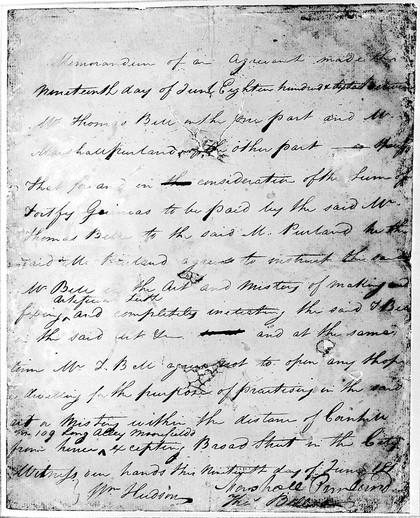 Memorandum of an Agreement made the
Nineteenth day of June Eighteen hundred &
Mr Thomas Bell on the one part and Mr
Marshall Purland of the other part
That for and in the consideration of the Sum of
Fortfy Guineas to be paid by the said Mr
Thomas Bell to the said M. Purland he the
said M. Purland agrees to instruct the said
Mr Bell in the Art and Mistery of making and
artificial Teeth
fixing and completely instructing the said T Bell
in the said art &c and at the same
time Mr T. Bell agrees not to open any shop
or dwelling for the purpose of practising in the said
art or Mistery within the distance of Cornhill
from 109 Long Alley Moorfields
from hence excepting Broad Street in the City
Witness our hands this Nineteenth day of June
Wm Hudson Marshall Purland
Thos Bell